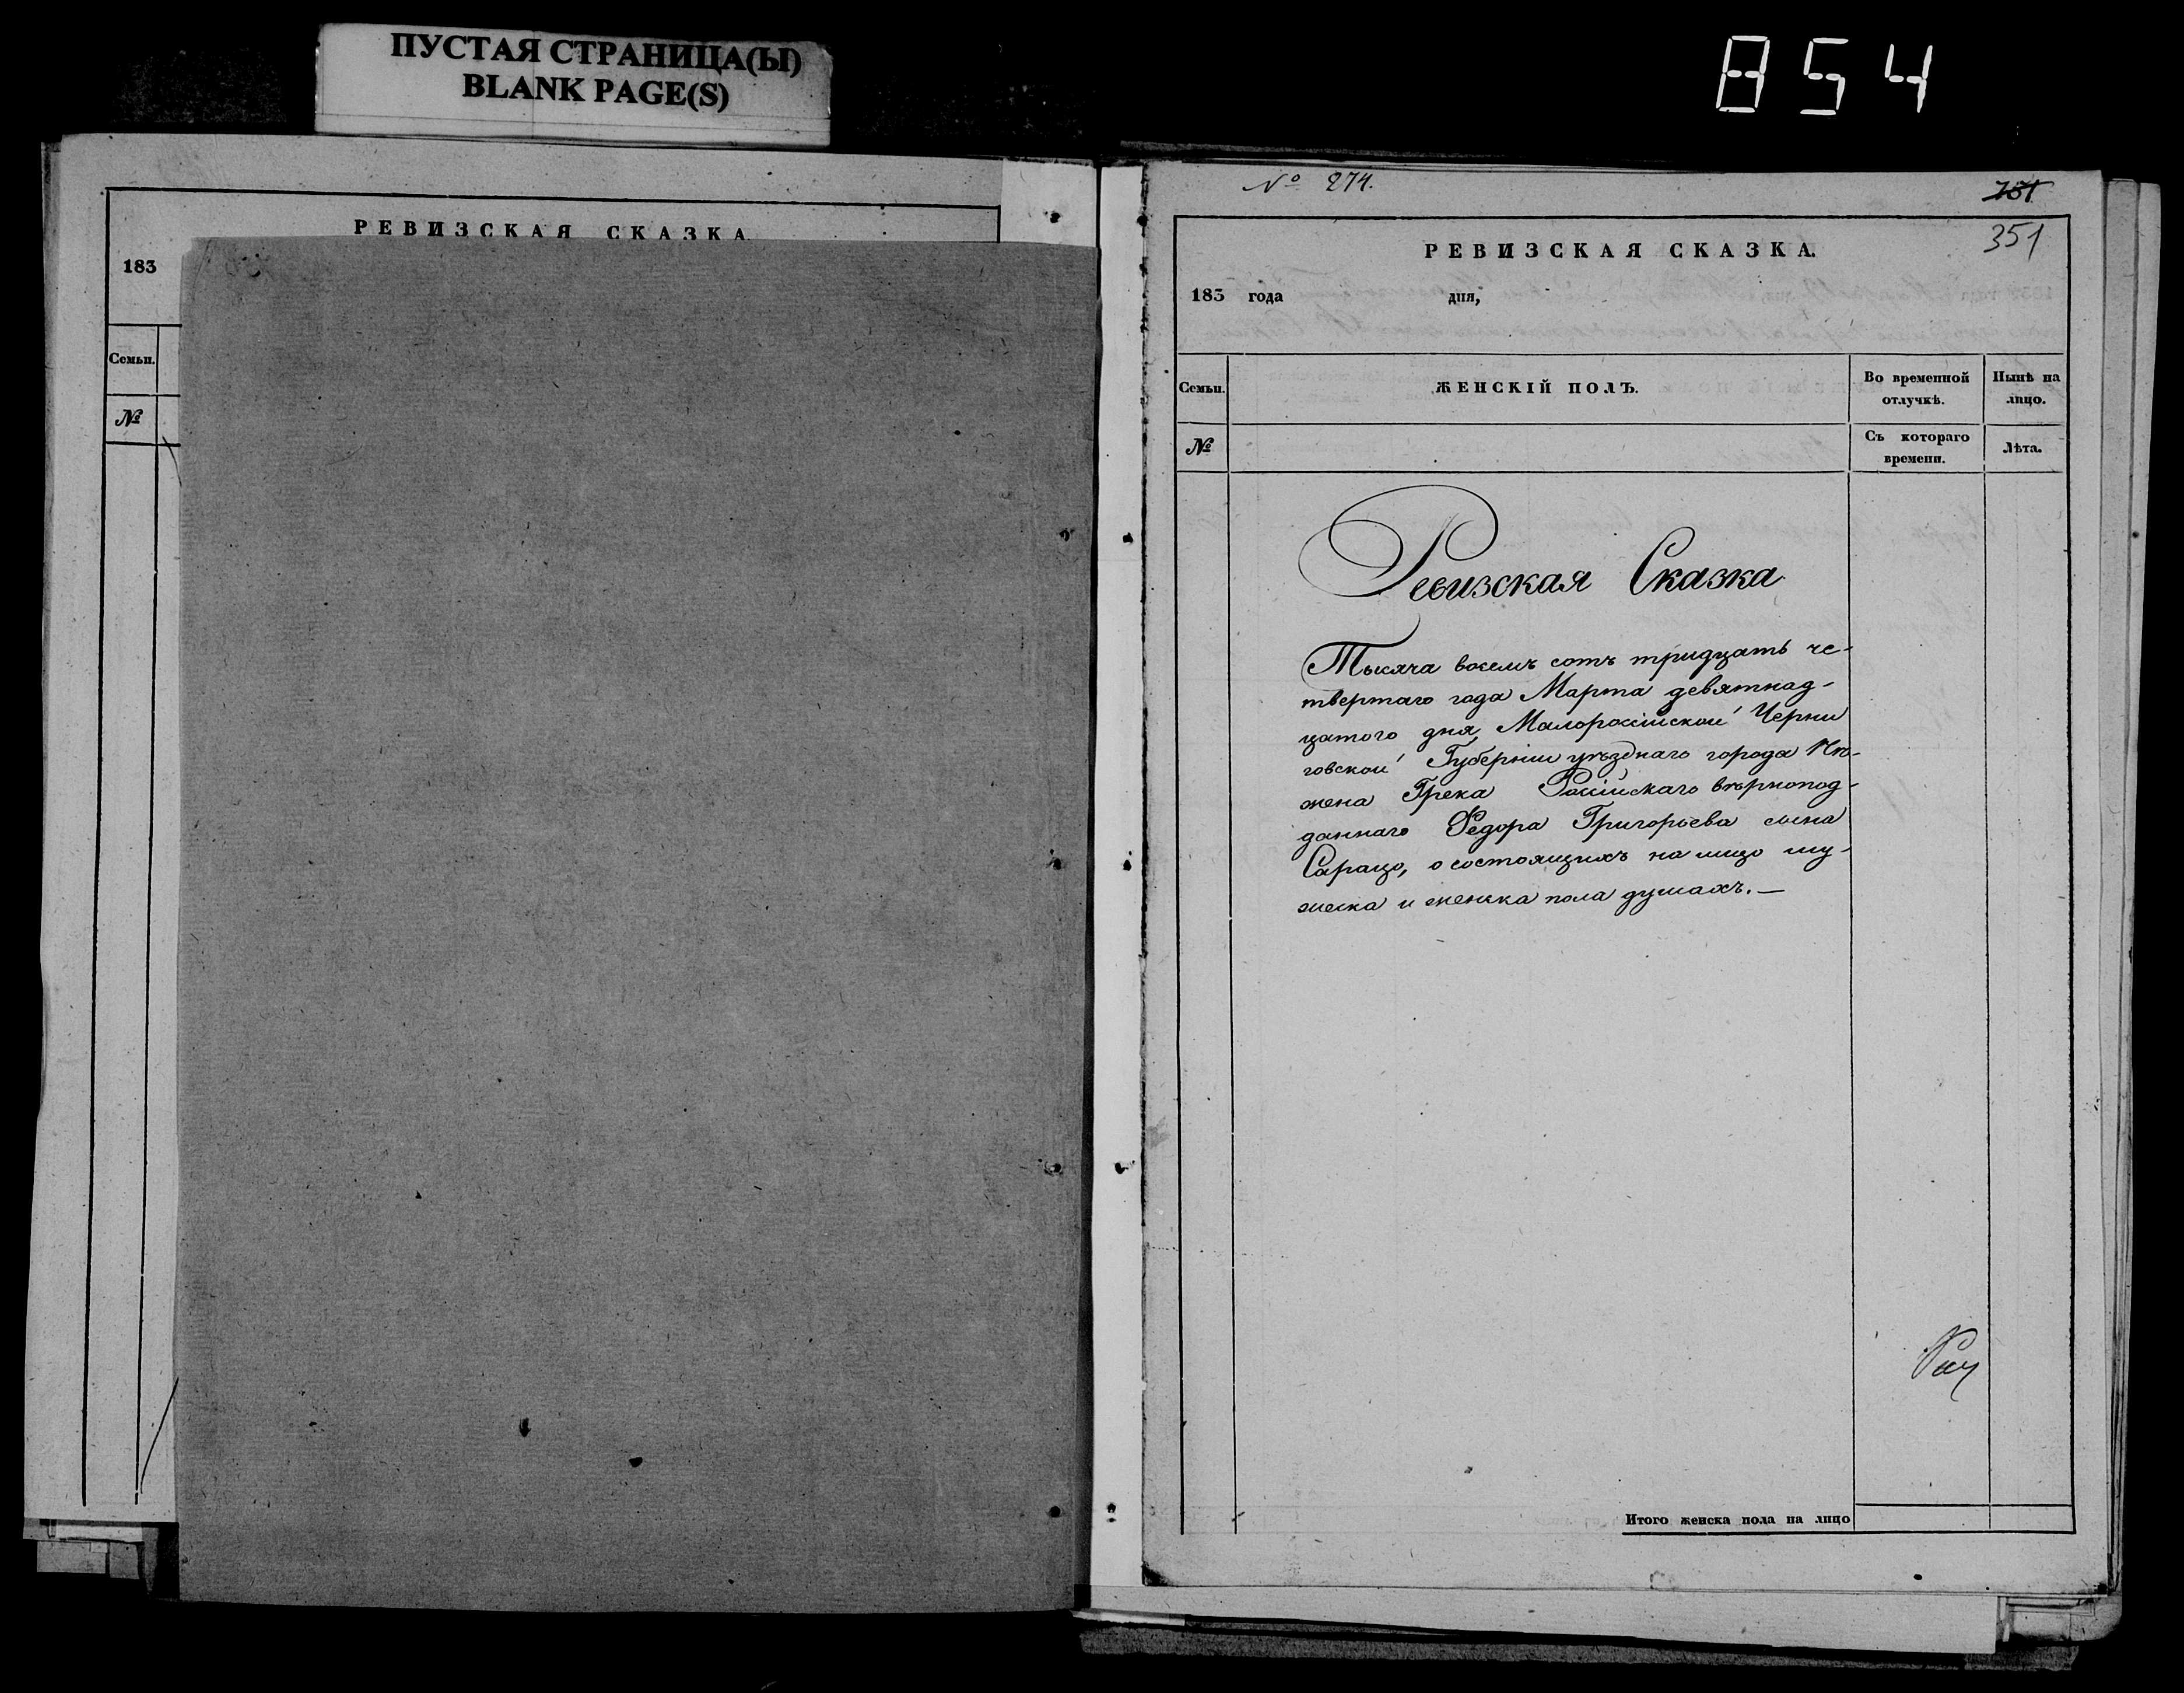 ПУСТАЯ СТРАНИЦА(Ы)
BLANK PAGE(S)
854
РЕВИЗСКАЯ СКАЗКА
183
Семьи.
№
№ 274.
351
РЕВИЗСКАЯ СКАЗКА.
183 года дня,
Семьи. ЖЕНСКІЙ ПОЛЪ. Во временной отлучкѣ. Нынѣ на лицо.
№ Съ котораго времени. Лѣта.
Ревизская Сказка
Тысяча восемъ сотъ тридцать че-
твертаго года Марта девятнад-
цатого дня, Малороссійской Черни
говской Губерніи уѣзднаго города Нѣ-
жена Грека Россійскаго вѣрнопод-
даннаго Федора Григорьева сына
Сарацо, о состоящихъ на лицо му-
жеска и женска пола душахъ.—
Итого женска пола на лицо